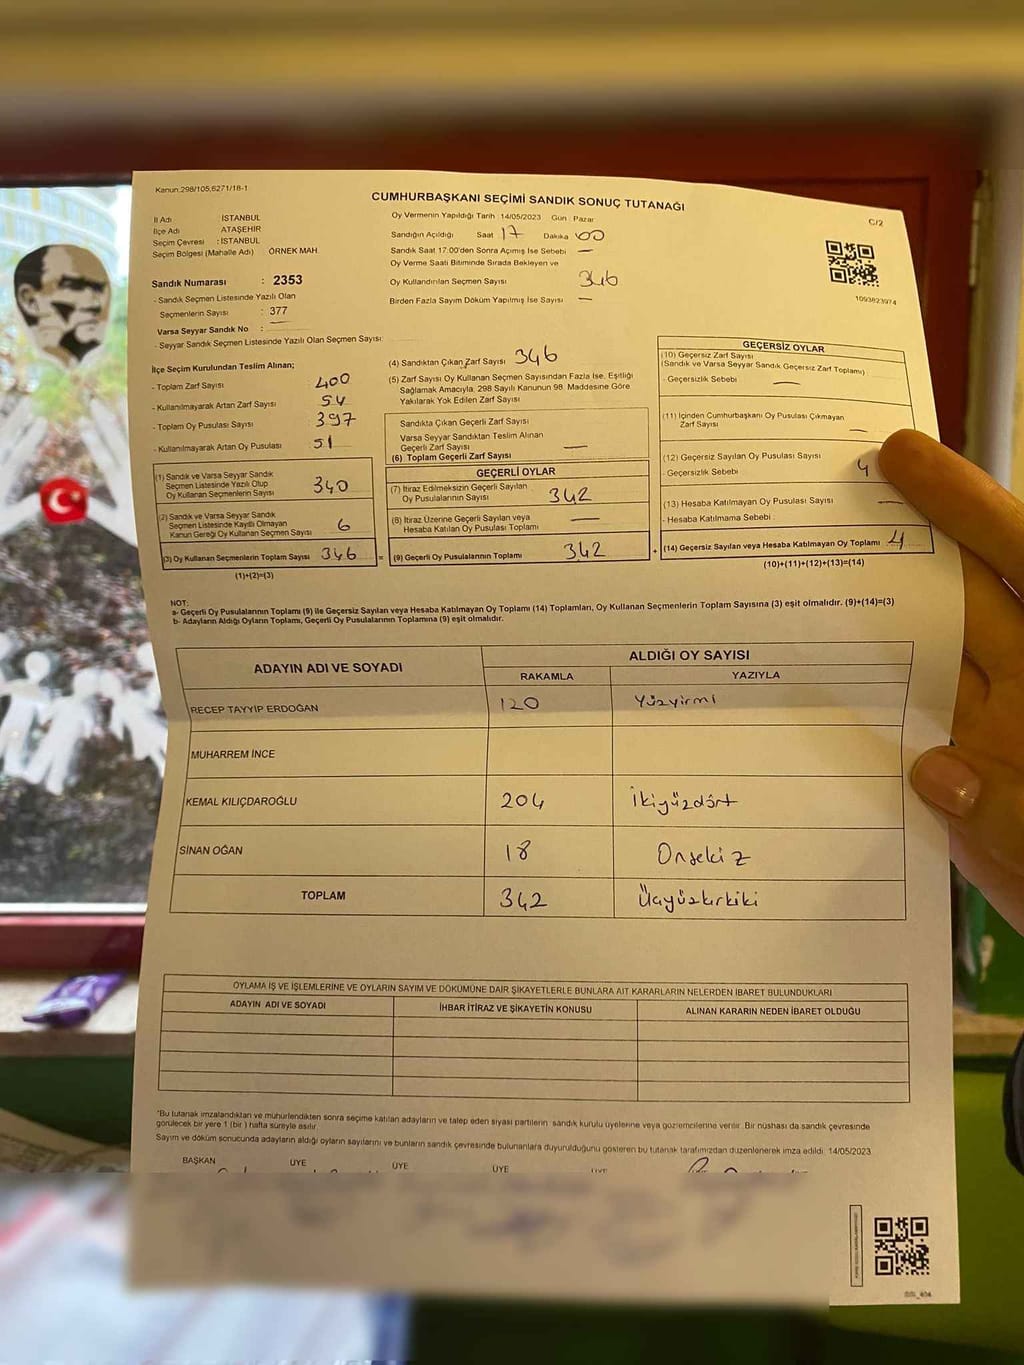 Kanun:298/105,6271/18-1
CUMHURBAŞKANI SEÇİMİ SANDIK SONUÇ TUTANAĞI
C/2
İl Adı : İSTANBUL
İlçe Adı : ATAŞEHİR
Seçim Çevresi : İSTANBUL
Seçim Bölgesi (Mahalle Adı) : ÖRNEK MAH.
Sandık Numarası : 2353
- Sandık Seçmen Listesinde Yazılı Olan
Seçmenlerin Sayısı : 377
Varsa Seyyar Sandık No :
- Seyyar Sandık Seçmen Listesinde Yazılı Olan Seçmen Sayısı:
Oy Vermenin Yapıldığı Tarih : 14/05/2023 Gün : Pazar
Sandığın Açıldığı Saat 17 Dakika 00
Sandık Saat 17:00'den Sonra Açımış İse Sebebi —
Oy Verme Saati Bitiminde Sırada Bekleyen ve
Oy Kullandırılan Seçmen Sayısı 346
Birden Fazla Sayım Döküm Yapılmış İse Sayısı —
1093823974
İlçe Seçim Kurulundan Teslim Alınan;
- Toplam Zarf Sayısı 400
- Kullanılmayarak Artan Zarf Sayısı 54
- Toplam Oy Pusulası Sayısı 397
- Kullanılmayarak Artan Oy Pusulası 51
(1) Sandık ve Varsa Seyyar Sandık
Seçmen Listesinde Yazılı Olup
Oy Kullanan Seçmenlerin Sayısı 340
(2) Sandık ve Varsa Seyyar Sandık
Seçmen Listesinde Kayıtlı Olmayan
Kanun Gereği Oy Kullanan Seçmen Sayısı 6
(3) Oy Kullanan Seçmenlerin Toplam Sayısı 346 =
(1)+(2)=(3)
(4) Sandıktan Çıkan Zarf Sayısı 346
(5) Zarf Sayısı Oy Kullanan Seçmen Sayısından Fazla İse, Eşitliği
Sağlamak Amacıyla, 298 Sayılı Kanunun 98. Maddesine Göre
Yakılarak Yok Edilen Zarf Sayısı
Sandıkta Çıkan Geçerli Zarf Sayısı
Varsa Seyyar Sandıktan Teslim Alınan
Geçerli Zarf Sayısı —
(6) Toplam Geçerli Zarf Sayısı
GEÇERLİ OYLAR
(7) İtiraz Edilmeksizin Geçerli Sayılan
Oy Pusulalarının Sayısı 342
(8) İtiraz Üzerine Geçerli Sayılan veya
Hesaba Katılan Oy Pusulası Toplamı —
(9) Geçerli Oy Pusulalarının Toplamı 342 +
GEÇERSİZ OYLAR
(10) Geçersiz Zarf Sayısı
(Sandık ve Varsa Seyyar Sandık Geçersiz Zarf Toplamı)
- Geçersizlik Sebebi —
(11) İçinden Cumhurbaşkanı Oy Pusulası Çıkmayan
Zarf Sayısı —
(12) Geçersiz Sayılan Oy Pusulası Sayısı
- Geçersizlik Sebebi 4
(13) Hesaba Katılmayan Oy Pusulası Sayısı —
- Hesaba Katılmama Sebebi
(14) Geçersiz Sayılan veya Hesaba Katılmayan Oy Toplamı 4
(10)+(11)+(12)+(13)=(14)
NOT:
a- Geçerli Oy Pusulalarının Toplamı (9) ile Geçersiz Sayılan veya Hesaba Katılmayan Oy Toplamı (14) Toplamları, Oy Kullanan Seçmenlerin Toplam Sayısına (3) eşit olmalıdır. (9)+(14)=(3)
b- Adayların Aldığı Oyların Toplamı, Geçerli Oy Pusulalarının Toplamına (9) eşit olmalıdır.
ADAYIN ADI VE SOYADI
ALDIĞI OY SAYISI
RAKAMLA YAZIYLA
RECEP TAYYİP ERDOĞAN 120 Yüzyirmi
MUHARREM İNCE
KEMAL KILIÇDAROĞLU 204 İkiyüzdört
SİNAN OĞAN 18 Onsekiz
TOPLAM 342 Üçyüzkırkiki
OYLAMA İŞ VE İŞLEMLERİNE VE OYLARIN SAYIM VE DÖKÜMÜNE DAİR ŞİKAYETLERLE BUNLARA AİT KARARLARIN NELERDEN İBARET BULUNDUKLARI
ADAYIN ADI VE SOYADI İHBAR İTİRAZ VE ŞİKAYETİN KONUSU ALINAN KARARIN NEDEN İBARET OLDUĞU
*Bu tutanak imzalandıktan ve mühürlendikten sonra seçime katılan adayların ve talep eden siyasi partilerin sandık kurulu üyelerine veya gözlemcilerine verilir. Bir nüshası da sandık çevresinde
görülecek bir yere 1 (bir) hafta süreyle asılır.
Sayım ve döküm sonucunda adayların aldığı oyların sayılarını ve bunların sandık çevresinde bulunanlara duyurulduğunu gösteren bu tutanak tarafımızdan düzenlenerek imza edildi. 14/05/2023
BAŞKAN ÜYE ÜYE ÜYE ÜYE